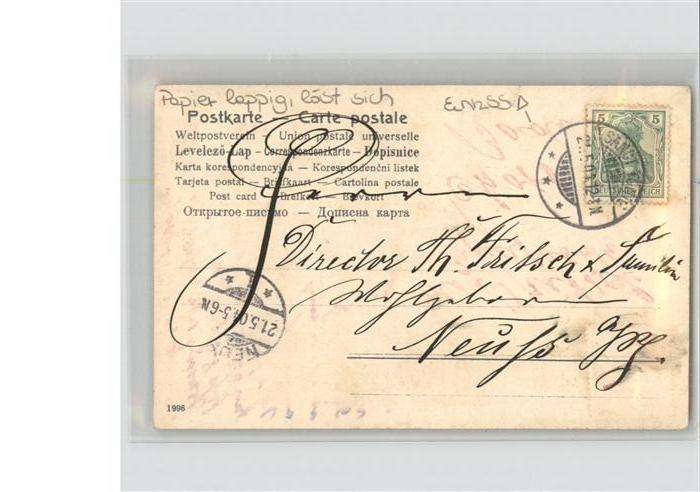 Papier lappig, löst sich
Postkarte — Carte postale
Weltpostverein — Union postale universelle
Levelező-Lap — Correspondenzkarte — Dopisnice
Karta korespondencyjna — Korespondenční listek
Tarjeta postal — Briefkaart — Cartolina postale
Post card — Brefkort — Brevkort
Открытое письмо — Дописна карта
5 5
Herrn
Director Th. Fritsch & Familie
Wohlgeboren
21.5.0 5-6N
Neuss
1996